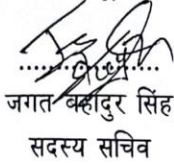 जगत बहादुर सिंह
सदस्य सचिव